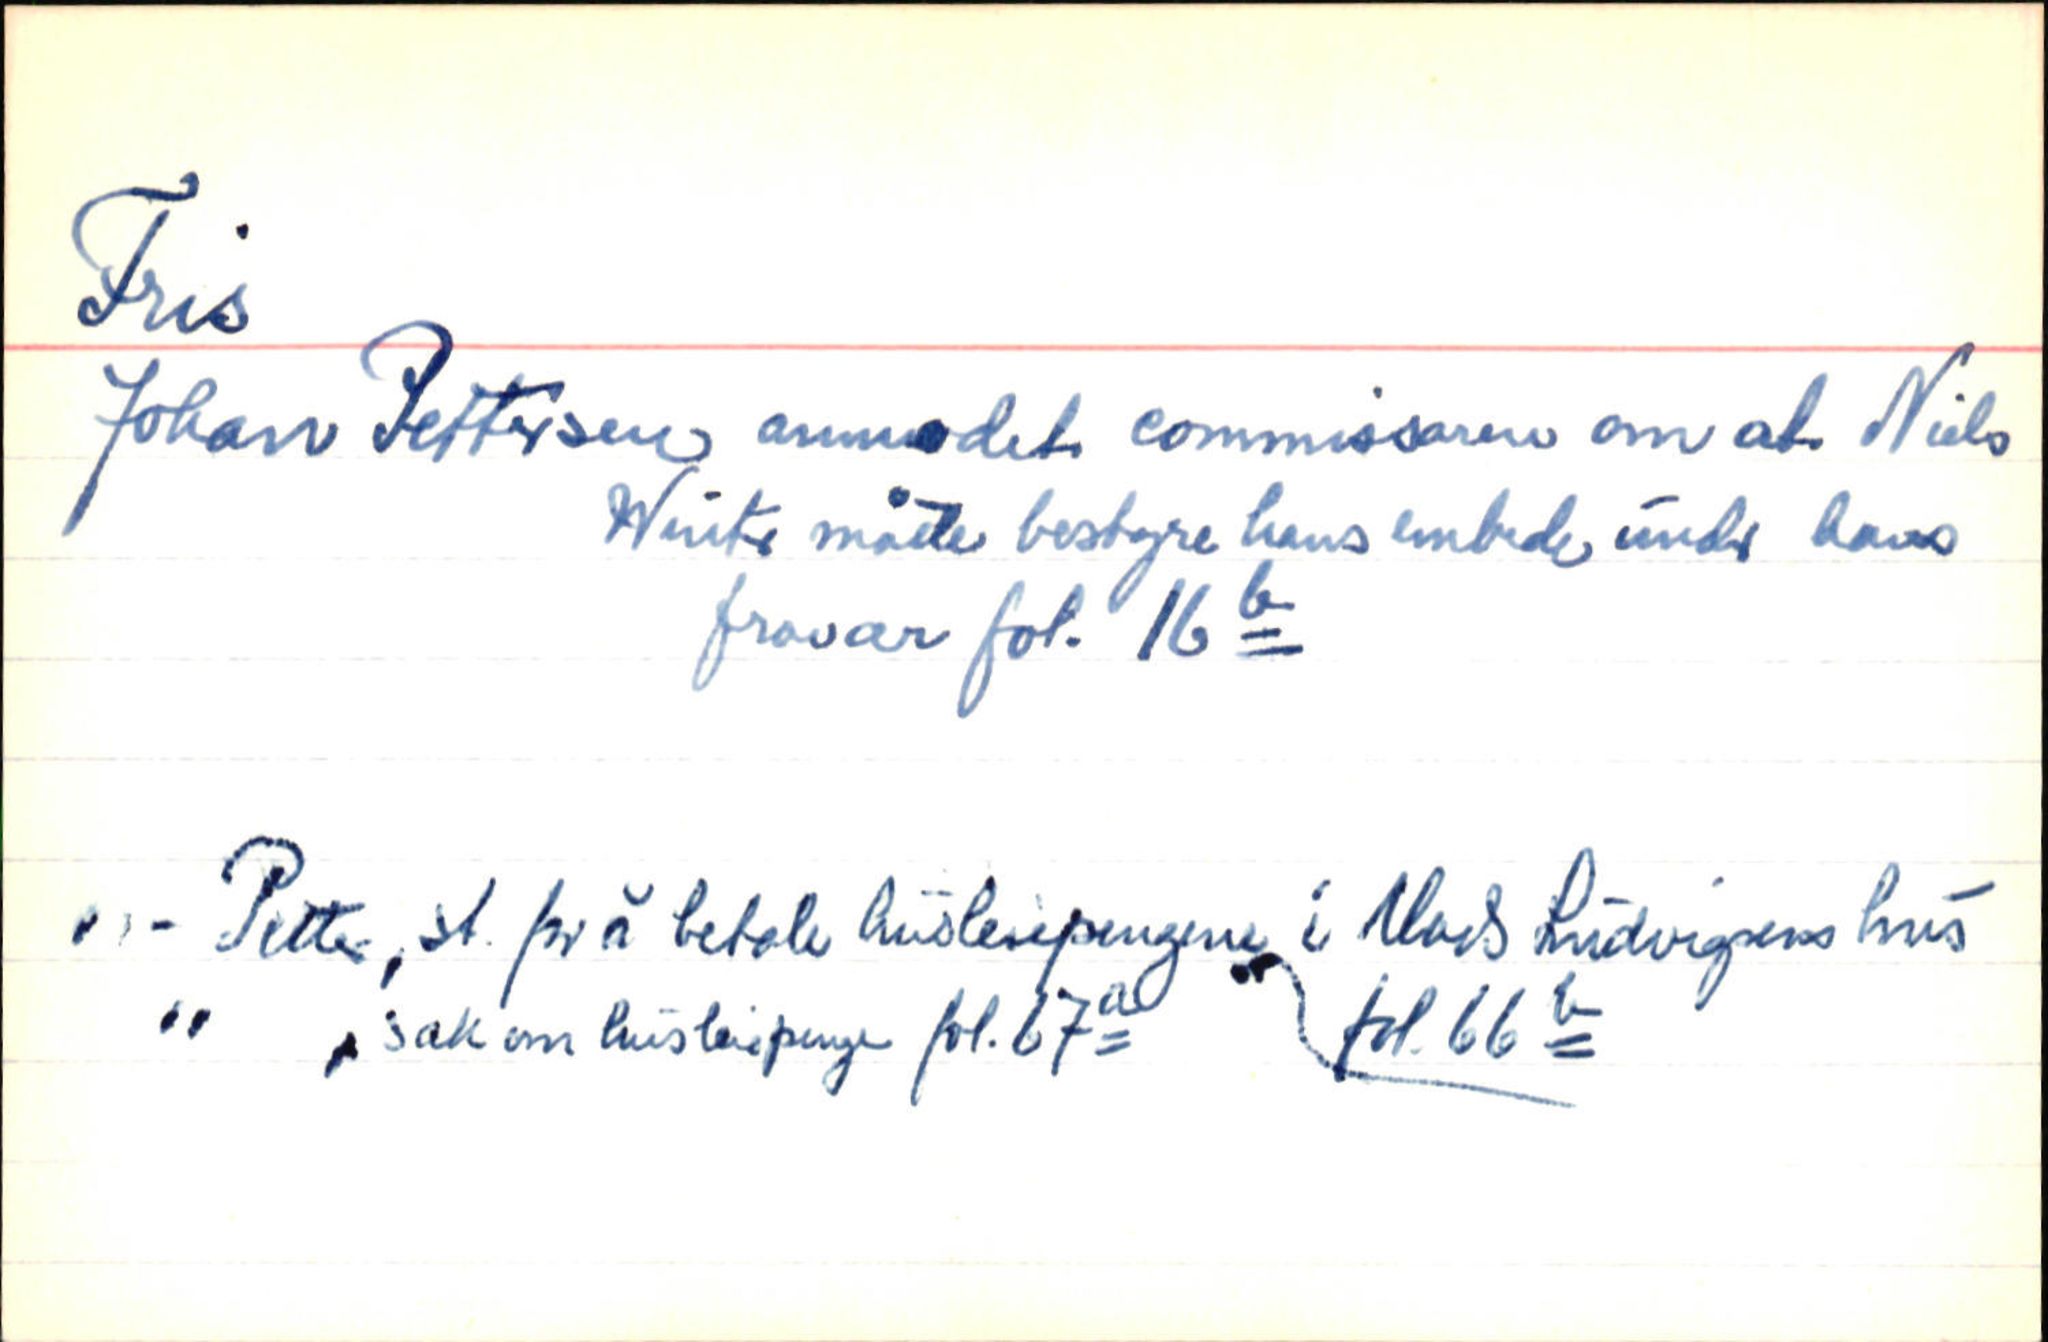 Fris
Johan Pettersen anmodet commissaren om at Niels
Winter måtte bestyre hans embede under hans
fravær fol. 16 b
" - Petter, st. for å betale husleiepengene i Mads Ludvigsens hus
fol. 66 b
" , sak om husleiepenge fol. 67 a